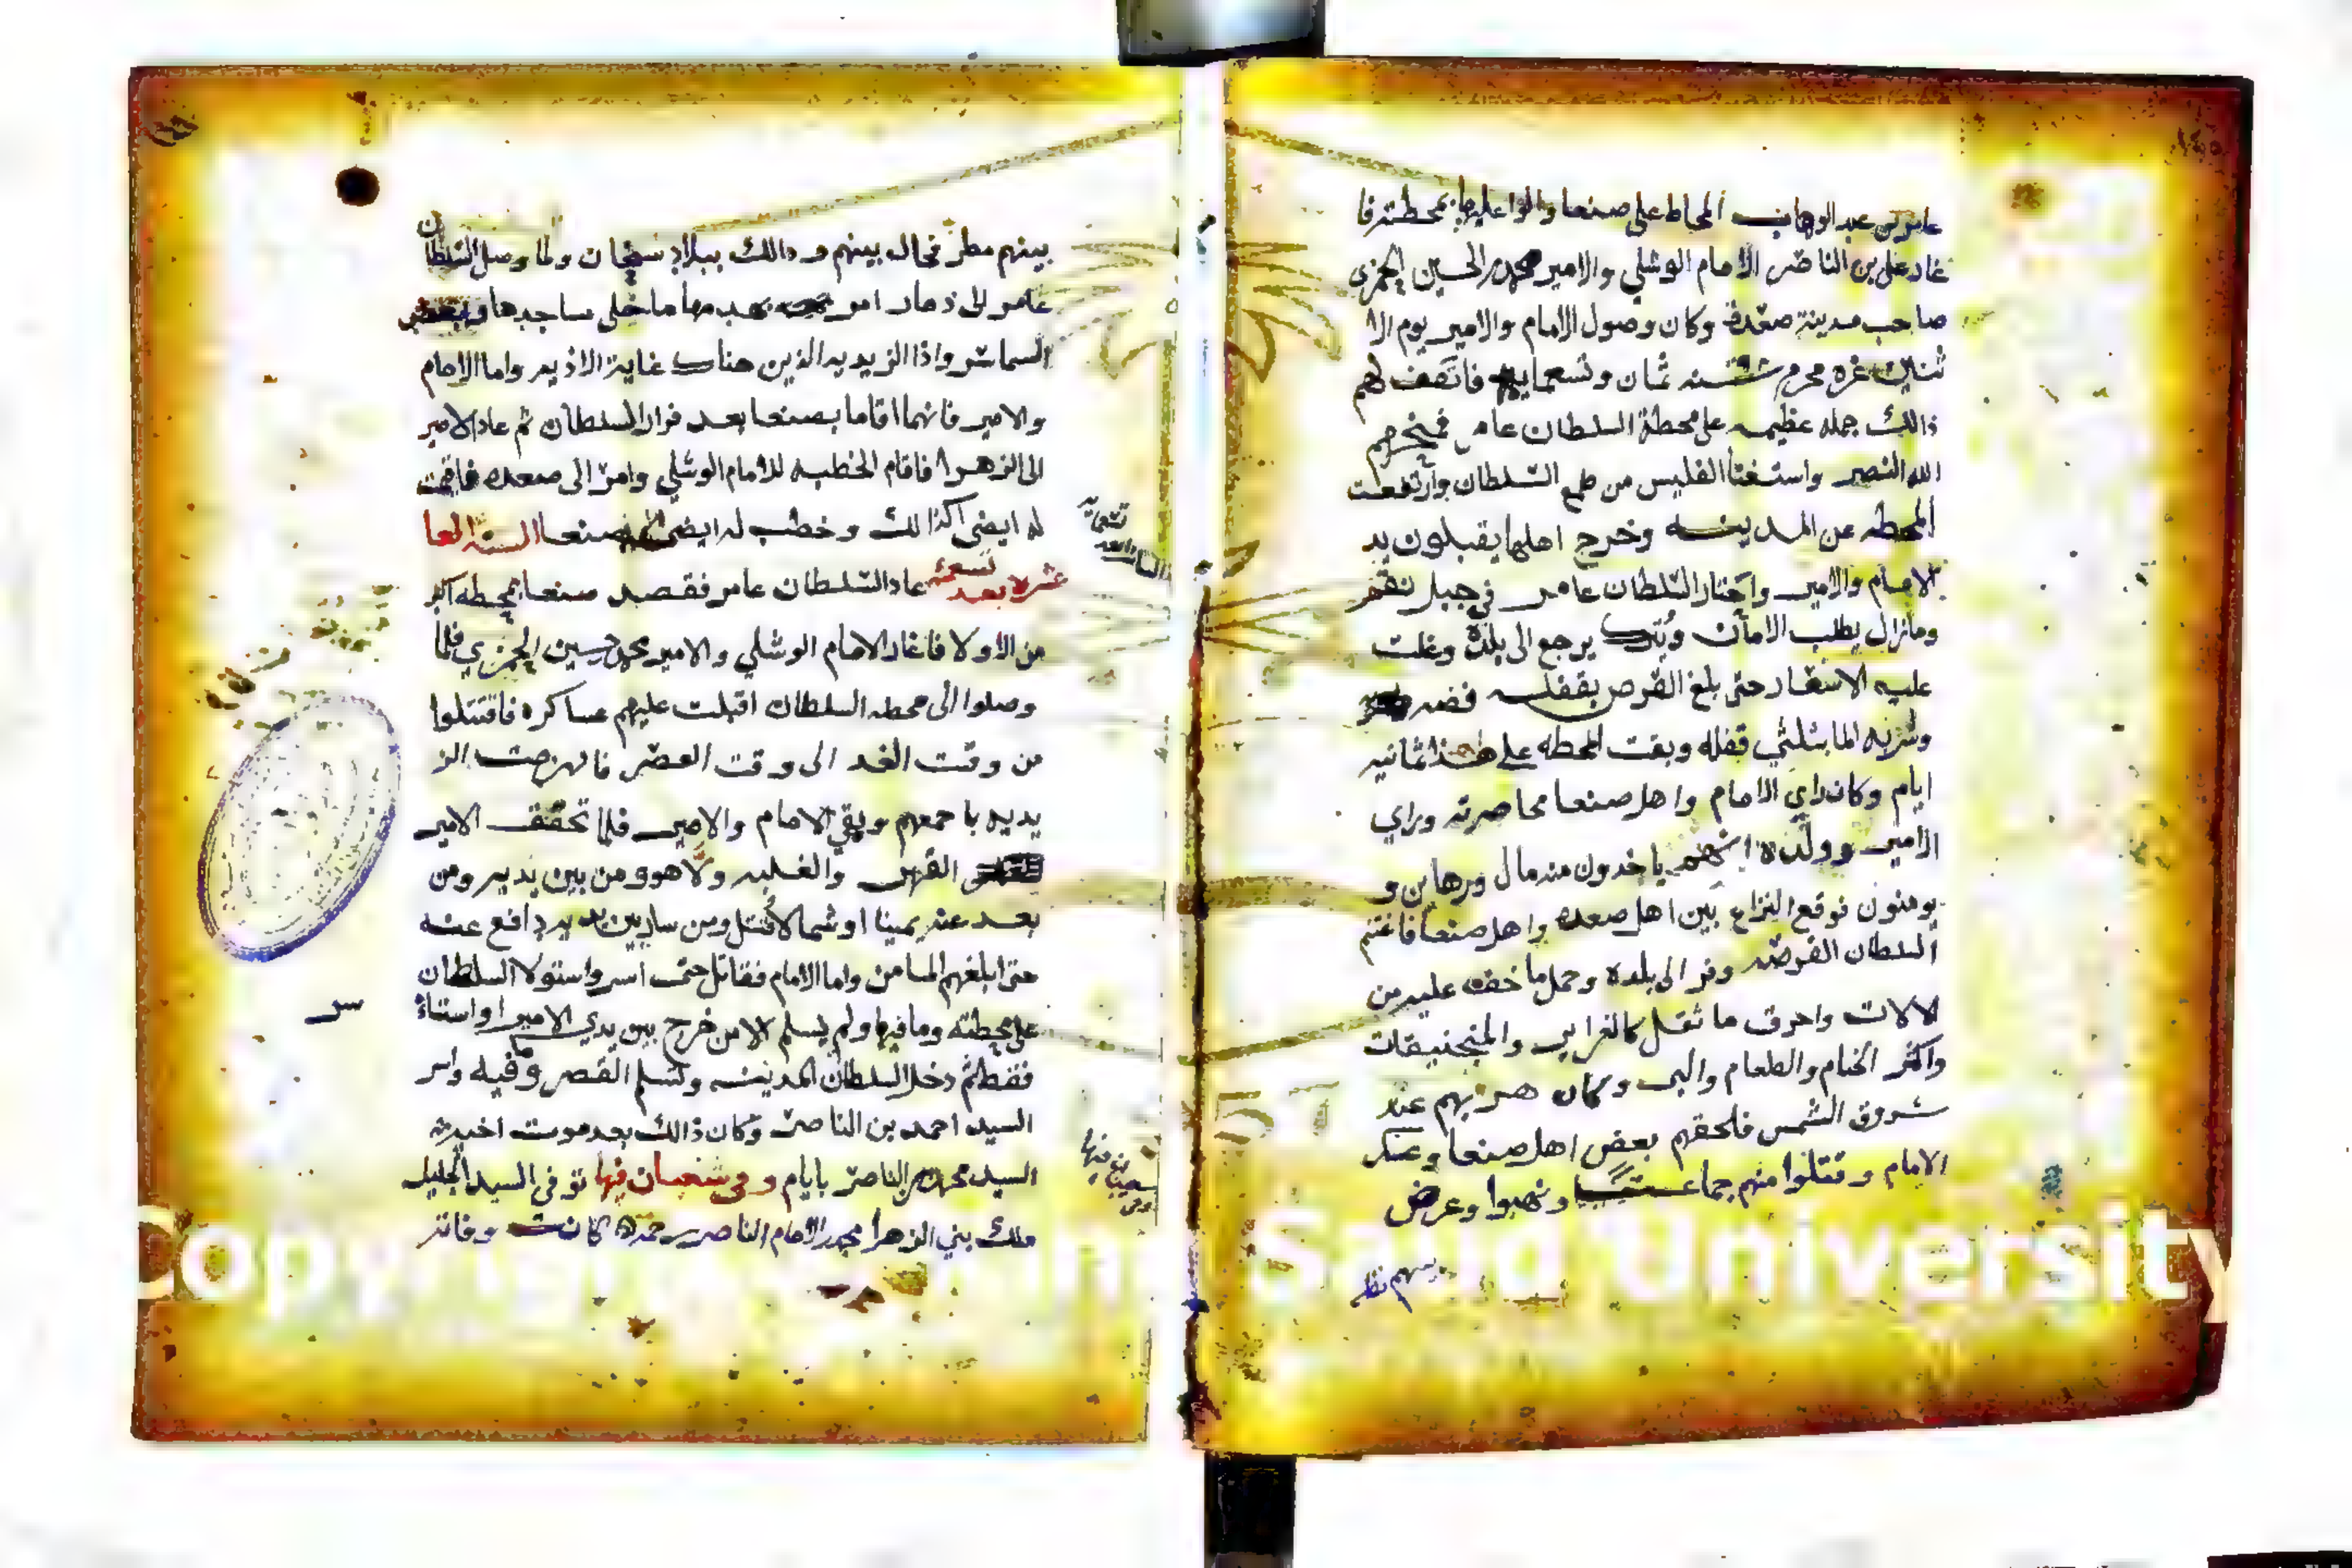 عامر بن عبد الوهاب المحاط على صنعا والوا عليها بمحطته فا
غار على بن الناصر الامام الوشلي والامير محمد بن الحسين الحمزي
صاحب مدينة صعده وكان وصول الامام والامير يوم الا
ثنين غره محرم سنه ثمان وتسعمايه فاتفق لهم
ذالك جمله عظيمه على محطة السلطان عامر فمنحهم
الله النصر واستغنا الفليس من طمع السلطان وارتفعت
المحطه عن المدينه وخرج اهلها يقبلون يد
الامام والامير واختار السلطان عامر في جبل نقم
ومازال يطلب الامان يرجع الى بلده وغلت
عليه الاسعار حتى بلغ القرص بقفله فضه
وشربه الما بثلثي قفله وبقت المحطه على هذا ثمانيه
ايام وكان راي الامام واهل صنعا محاصرته وراي
الامير وولده انهم ياخذون منه مال ورهاين و
يومنون فوقع النزاع بين اهل صعده واهل صنعا فاغتنم
السلطان الفرصه وفر الى بلده وحمل ما خف عليه من
الالات واحرق ما ثقل كالغراير والمنجنيقات
واكثر الخيام والطعام والبر وكان هربهم عند
شروق الشمس فلحقهم بعض اهل صنعا وعسكر
الامام وقتلوا منهم جماعة ونهبوا وعرض
بينهم مطر
بينهم مطر فحال بينهم وذالك ببلاد سنحان ولما وصل السلطان
عامر الى ذمار امر بنهب مها ما خلى مساجدها وبعض
السماسر واذا الزيديه الذين هناك غاية الاذيه واما الامام
والامير فانهما اقاما بصنعا بعد فرار السلطان ثم عاد الامير
الى الزهرا فاقام الخطبه للامام الوشلي وامر الى صعده فاقيمت
له ايضى كذالك وخطب له ايضى صنعا السنه العا
شره بعد تسعمئه عاد السلطان عامر فقصد صنعا بمحطه اكبر
من الاولا فاغار الامام الوشلي والامير محمد حسين الحمزي فلما
وصلوا الى محطه السلطان اقبلت عليهم عساكره فاقتتلوا
من وقت الغد الى وقت العصر فانهزمت الز
يديه باجمعهم وبقي الامام والامير فلما تحقق الامير
القهر والغلبه ولا هو ومن بين يديه ومن
بعد عنه يمينا او شمالا قتل ومن سار بين يديه دافع عنه
حتى ابلغهم المامن واما الامام فقاتل حتى اسر واستولا السلطان
على محطته وما فيها ولم يسلم الا من خرج بين يدي الامير او استاذ
فقط ثم دخل السلطان المدينه وتسلم القصر وفيه واسر
السيد احمد بن الناصر وكان ذالك بعد موت اخيه
السيد محمد بن الناصر بايام وفي شعبان فيها توفى السيد الجليل
ملك بني الزهرا محمد الامام الناصر رحمه كانت وفاته